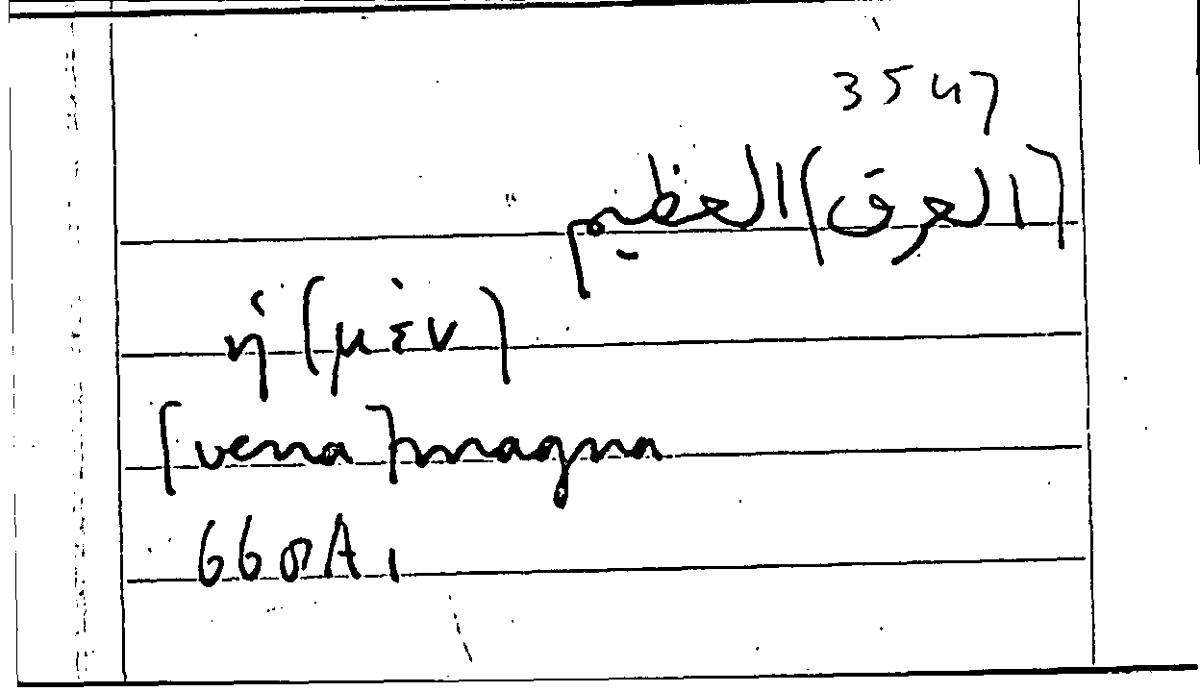 3547
(العرق) العظيم
ἡ (μὲν)
[vena] magna
668A1